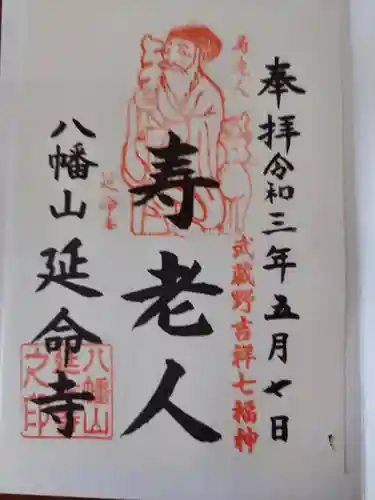 奉拝令和三年五月七日
寿老人
武蔵野吉祥七福神
寿老人
八幡山延命寺
八幡山
延命寺
之印